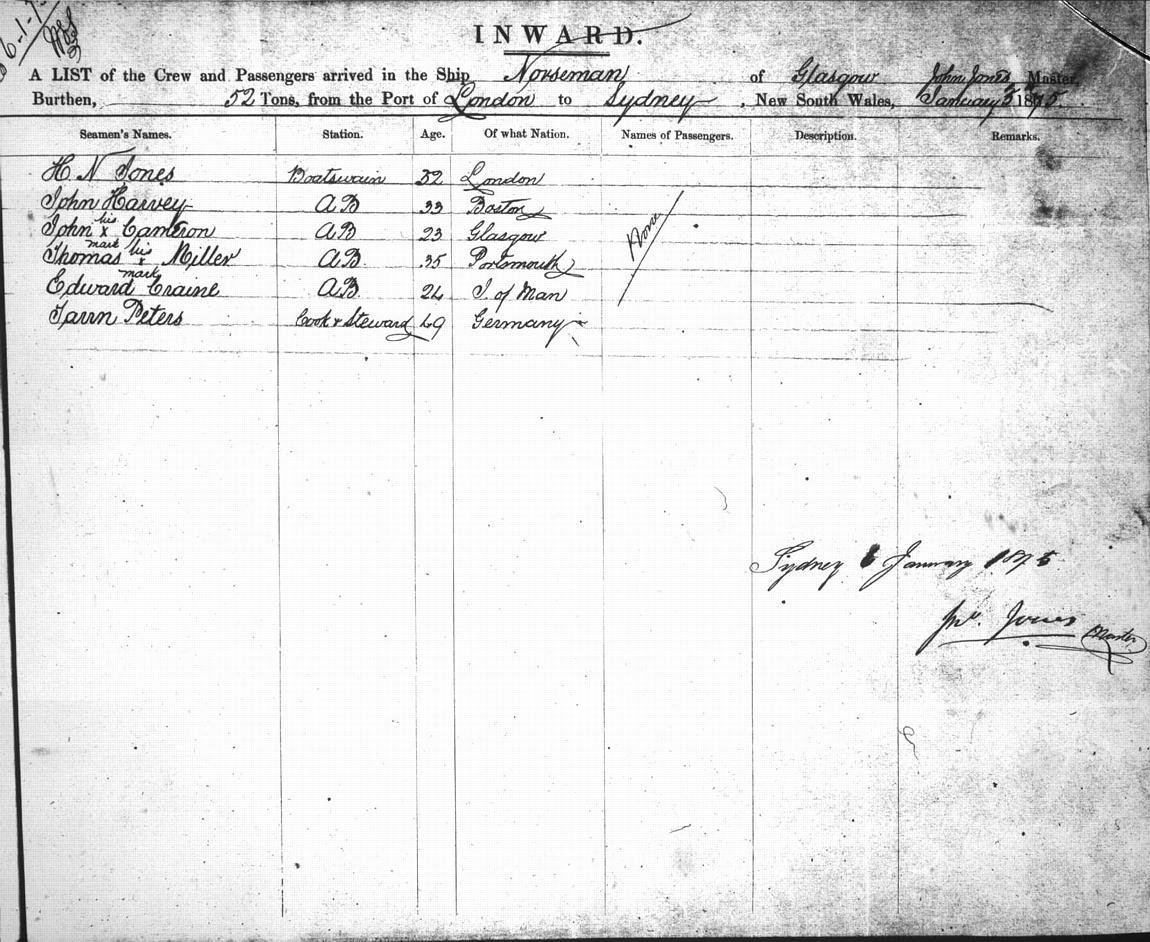 6.1.7
INWARD.
A LIST of the Crew and Passengers arrived in the Ship Norseman of Glasgow John Jones Master,
Burthen, 52 Tons, from the Port of London to Sydney, New South Wales, January 1875.
Seamen's Names. Station. Age. Of what Nation. Names of Passengers. Description. Remarks.
H N Jones Boatswain 32 London
John Harvey AB 33 Boston
John his x mark Cameron AB 23 Glasgow
Thomas his x mark Miller AB 35 Portsmouth
Edward Craine AB 24 I. of Man
Peters Cook & Steward 49 Germany
None
Sydney 6 January 1875
Jno. Jones Master